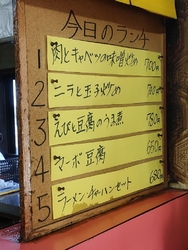 今日のランチ
1 肉とキャベツの味噌炒め 700円
2 ニラと玉子炒め
3 えびと豆腐のうま煮 750円
4 マーボ豆腐 650円
5 ラーメン・チャーハンセット 680円